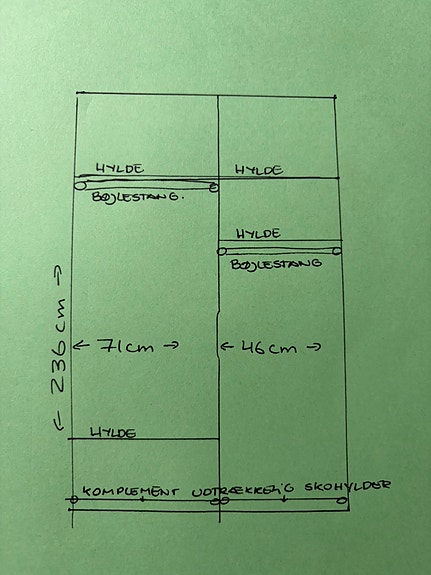 HYLDE HYLDE
BØJLESTANG.
HYLDE
BØJLESTANG
← 236 cm →
← 71 cm → ← 46 cm →
HYLDE
KOMPLEMENT UDTRÆKKELIG SKOHYLDER